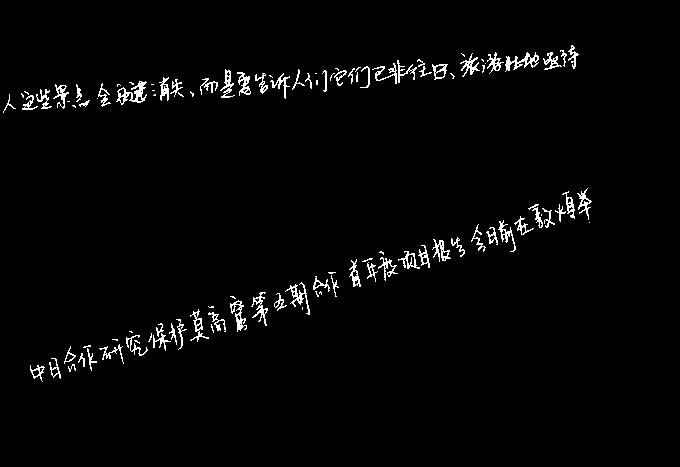 人这些景点会消失、而是要告诉人们它们已非往日、旅游胜地亟待
中日合作研究保护莫高窟第五期合作首年度项目报告会日前在敦煌举